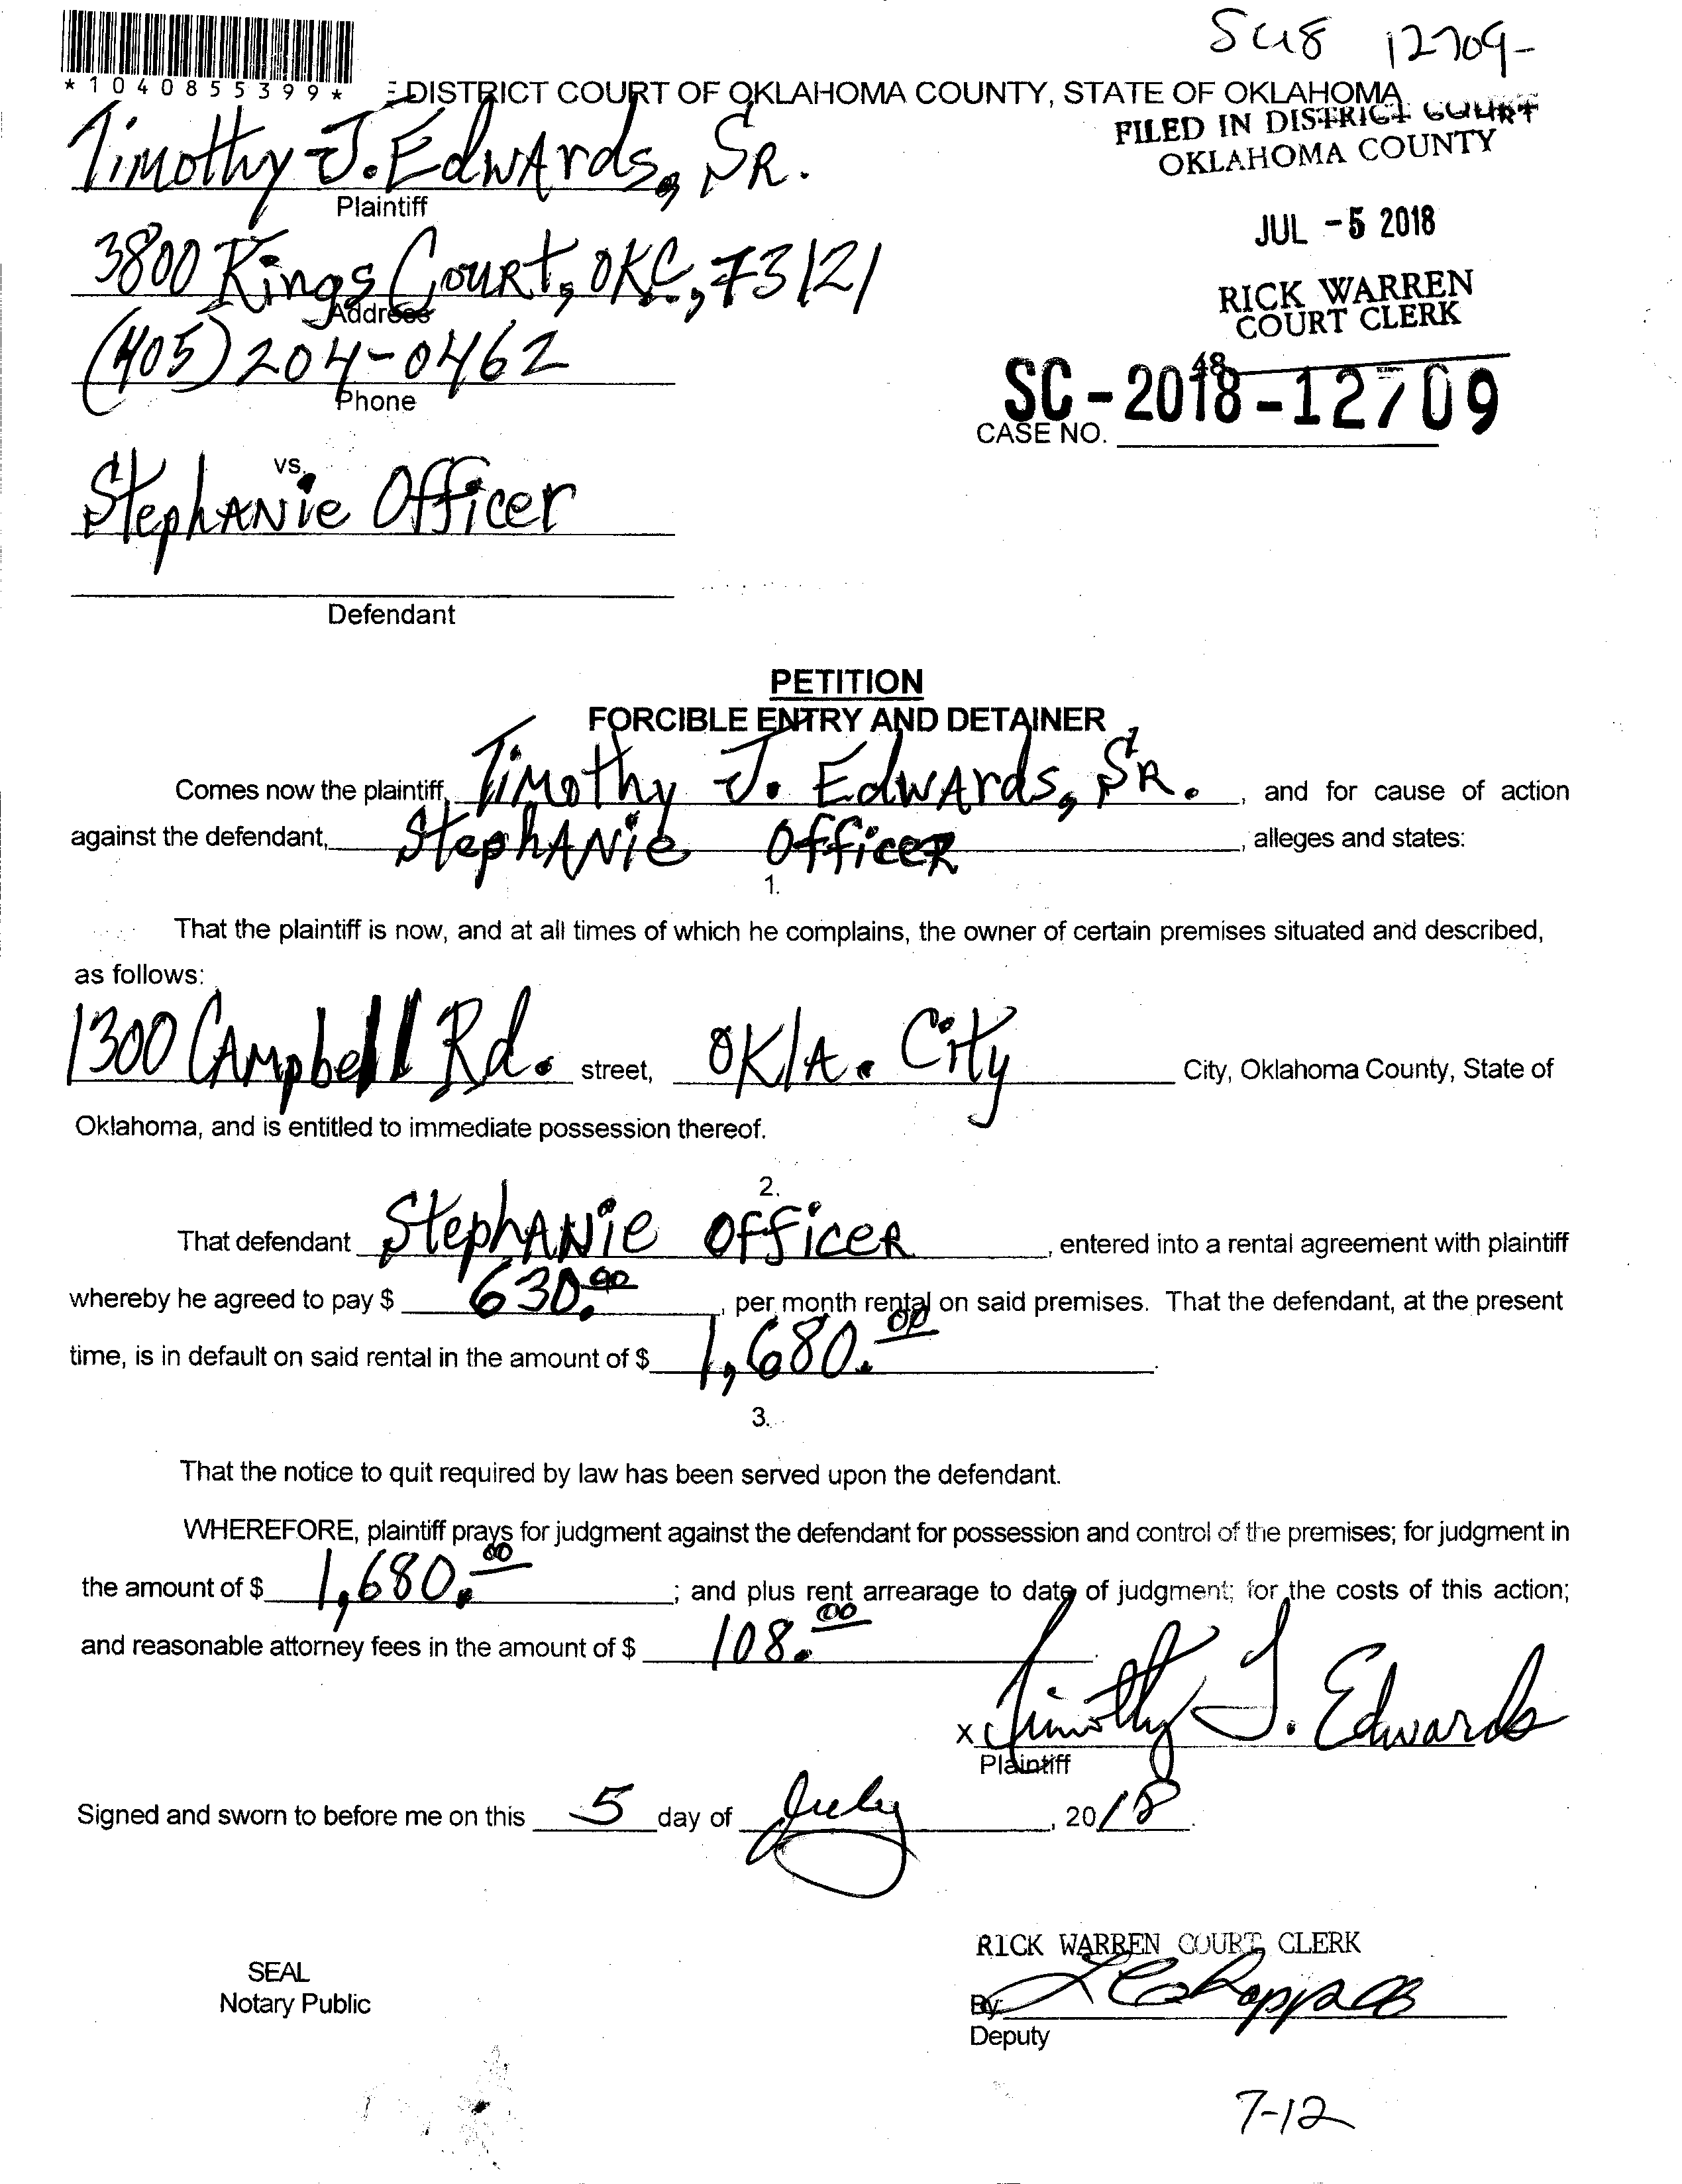 SC18 12709-
*1040855399*
DISTRICT COURT OF OKLAHOMA COUNTY, STATE OF OKLAHOMA
FILED IN DISTRICT COURT
OKLAHOMA COUNTY
Timothy J. Edwards, SR.
Plaintiff
JUL -5 2018
3800 Kings Court, OKC, 73121
Address
RICK WARREN
COURT CLERK
(405) 204-0462
Phone
48
SC-2018-12709
CASE NO.
vs.
Stephanie Officer
Defendant
PETITION
FORCIBLE ENTRY AND DETAINER
Comes now the plaintiff, Timothy J. Edwards, SR., and for cause of action
against the defendant, Stephanie Officer, alleges and states:
1.
That the plaintiff is now, and at all times of which he complains, the owner of certain premises situated and described,
as follows:
1300 Campbell Rd. street, Okla. City City, Oklahoma County, State of
Oklahoma, and is entitled to immediate possession thereof.
2.
That defendant Stephanie Officer, entered into a rental agreement with plaintiff
whereby he agreed to pay $ 630.00, per month rental on said premises. That the defendant, at the present
time, is in default on said rental in the amount of $ 1,680.00.
3.
That the notice to quit required by law has been served upon the defendant.
WHEREFORE, plaintiff prays for judgment against the defendant for possession and control of the premises; for judgment in
the amount of $ 1,680.00; and plus rent arrearage to date of judgment; for the costs of this action;
and reasonable attorney fees in the amount of $ 108.00.
x Timothy J. Edwards
Plaintiff
Signed and sworn to before me on this 5 day of July, 2018.
RICK WARREN COURT CLERK
SEAL
Notary Public
By:
Deputy
7-12